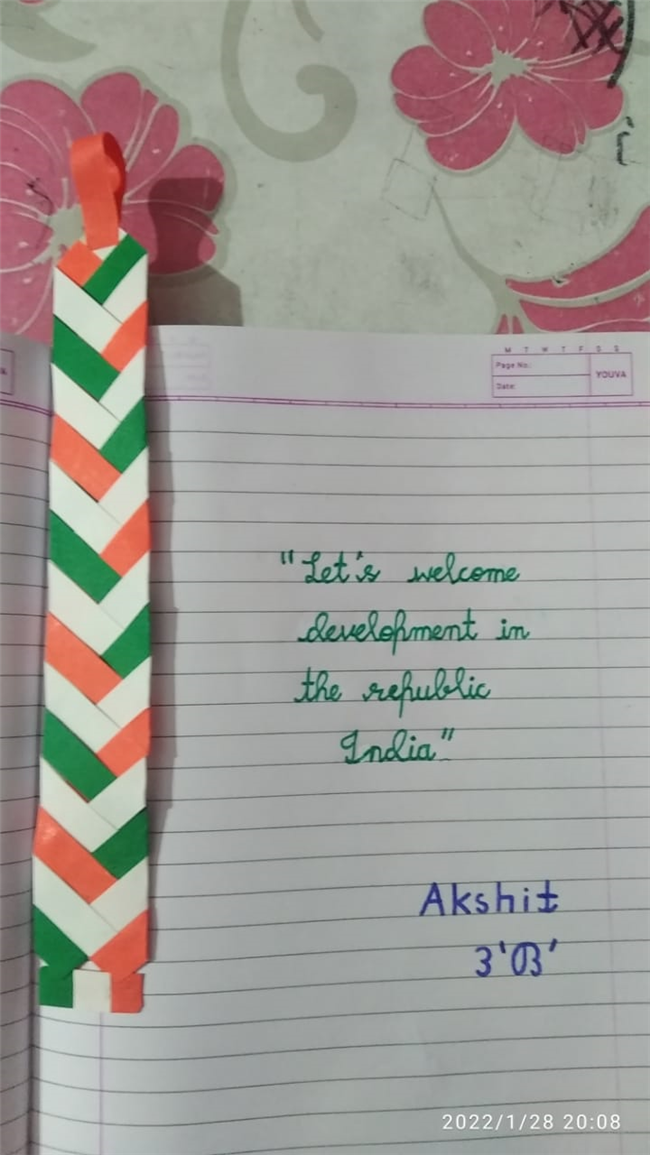 M T W T F S S
Page No.:
Date:
YOUVA
"Let's welcome
development in
the republic
India"
Akshit
3'B'
2022/1/28 20:08